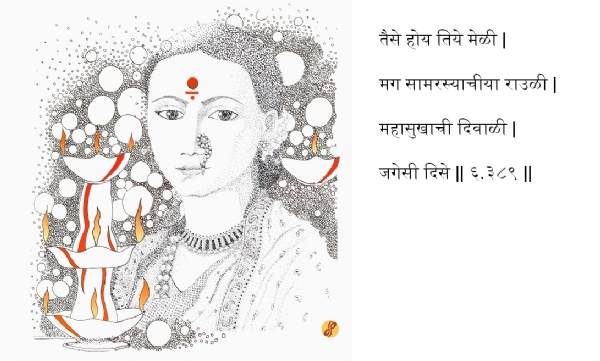 तैसे होय तिये मेळी |
मग सामरस्याचीया राउळी |
महासुखाची दिवाळी |
जगेसी दिसे || ६.३८९ ||